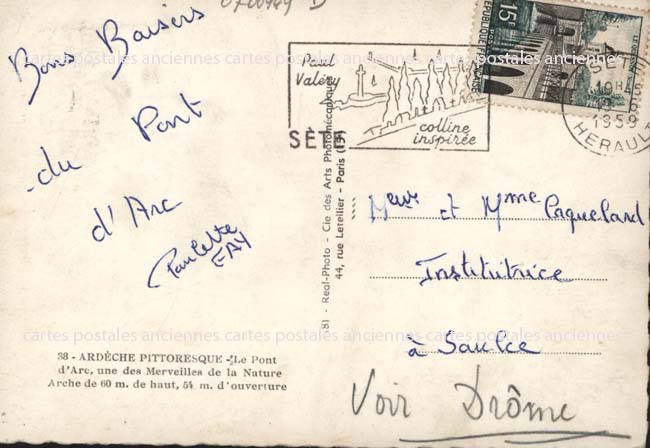 0700949 D
Bons Baisers
du Pont
d'Arc
Paulette
FAY
38 - ARDÈCHE PITTORESQUE - Le Pont
d'Arc, une des Merveilles de la Nature
Arche de 60 m. de haut, 54 m. d'ouverture
Real-Photo - Cie des Arts Photomécaniques
44, rue Letellier - Paris (15e)
Paul
Valéry
colline
inspirée
SÈTE
15F
REPUBLIQUE FRANÇAISE
1959
HERAULT
et Mme
Institutrice
à Saulce
Voir Drôme
cartes postales anciennes cartes postales anciennes cartes postales anciennes
cartes postales anciennes cartes postales anciennes cartes postales anciennes